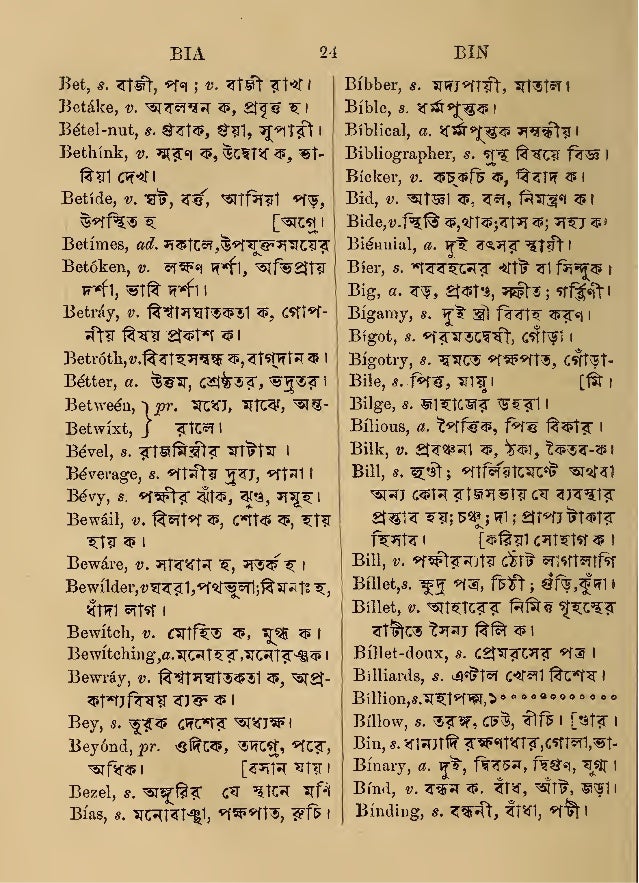 BIA 24 BIN
Bet, s. বাজী, পণ ; v. বাজী রাখ।
Betáke, v. অবলম্বন ক, প্রবৃত্ত হ।
Bétel-nut, s. গুবাক, গুয়া, সুপারী।
Bethínk, v. স্মরণ ক, উদ্বোধ ক, ভা-
বিয়া দেখ।
Betíde, v. ঘট, বর্ত্ত, আসিয়া পড়,
উপস্থিত হ [অগ্রে।
Betímes, ad. সকালে,উপযুক্তসময়ের
Betóken, v. লক্ষণ দর্শা, অভিপ্রায়
দর্শা, ভাবি দর্শা।
Betráy, v. বিশ্বাসঘাতকতা ক, গোপ-
নীয় বিষয় প্রকাশ ক।
Betróth,v.বিবাহসম্বন্ধ ক,বাগ্দান ক।
Bétter, a. উত্তম, শ্রেষ্ঠতর, ভদ্রতর।
Betweén, } pr. মধ্যে, মাঝে, অন্ত-
Betwíxt, } রালে।
Bével, s. রাজমিস্ত্রীর মাটাম।
Béverage, s. পানীয় দ্রব্য, পানা।
Bévy, s. পক্ষীর ঝাঁক, ঝুণ্ড, সমূহ।
Bewáil, v. বিলাপ ক, শোক ক, হায়
হায় ক।
Bewáre, v. সাবধান হ, সতর্ক হ।
Bewílder,vঘবরা,পথভুলা;বিমনাঃ হ,
ধাঁদা লাগ।
Bewítch, v. মোহিত ক, মুগ্ধ ক।
Bewítching,a.মনোহর,মনোরঞ্জক।
Bewráy, v. বিশ্বাসঘাতকতা ক, অপ্র-
কাশ্যবিষয় ব্যক্ত ক।
Bey, s. তুরক দেশের অধ্যক্ষ।
Beyónd, pr. ওদিকে, তদগ্রে, পরে,
অধিক। [বসান যায়।
Bezel, s. অঙ্গুরির যে স্থানে মণি
Bías, s. মনোবাঞ্ছা, পক্ষপাত, রুচি।
Bíbber, s. মদ্যপায়ী, মাতাল।
Bíble, s. ধর্ম্মপুস্তক।
Bíblical, a. ধর্ম্মপুস্তক সম্বন্ধীয়।
Bibliographer, s. গ্রন্থ বিষয়ে বিজ্ঞ।
Bícker, v. কচ্কচি ক, বিবাদ ক।
Bid, v. আজ্ঞা ক, বল, নিমন্ত্রণ ক।
Bide,v.স্থিতি ক,থাক;বাস ক; সহ্য ক।
Biénnial, a. দুই বৎসর স্থায়ী।
Bíer, s. শববহনের খাট বা সিন্দুক।
Big, a. বড়, প্রকাণ্ড, স্ফীত; গর্ব্ভিণী।
Bígamy, s. দুই স্ত্রী বিবাহ করণ।
Bígot, s. পরমতদ্বেষী, গোঁড়া।
Bígotry, s. স্বমতে পক্ষপাত, গোঁড়া-
Bile, s. পিত্ত, মায়ু। [মি।
Bilge, s. জাহাজের ডহরা।
Bílious, a. পৈত্তিক, পিত্ত বিকার।
Bilk, v. প্রবঞ্চনা ক, ঠকা, কৈতব-ক।
Bill, s. হুণ্ডী; পার্লিয়ামেণ্টে অথবা
অন্য কোন রাজসভায় যে ব্যবস্থার
প্রস্তাব হয়; চঞ্চু; দা; প্রাপ্য টাকার
হিসাব। [করিয়া সোহাগ ক।
Bill, v. পক্ষীরন্যায় ঠোঁট লাগালাগি
Bíllet,s. ক্ষুদ্র পত্র, চিঠী; গুঁড়ি,কুঁদা।
Bíllet, v. আহারের নিমিত্ত গৃহস্থের
বাটীতে সৈন্য বিলি ক।
Bíllet-doux, s. প্রেমরসের পত্র।
Bílliards, s. এণ্টাল খেলা বিশেষ।
Bíllion,s.মহাপদ্ম,১০০০০০০০০০০০০
Bíllow, s. তরঙ্গ, ঢেউ, বীচি। [ণ্ডার।
Bin, s. ধান্যাদি রক্ষণাধার,গোলা,ভা-
Bínary, a. দুই, দ্বিবচন, দ্বিগুণ, যুগ্ম।
Bínd, v. বন্ধন ক. বাঁধ, আঁট, জড়া।
Bínding, s. বন্ধনী, বাঁধা, পটী।